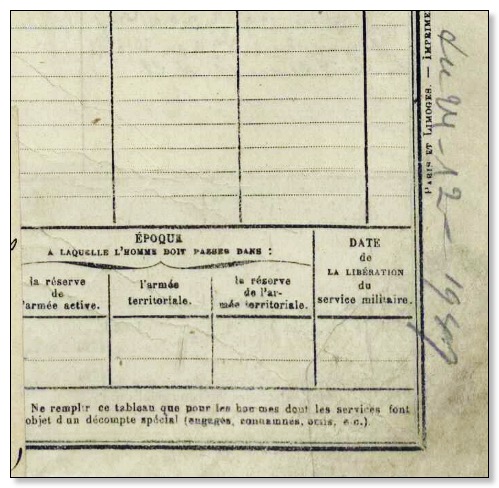 ÉPOQUE
A LAQUELLE L'HOMME DOIT PASSER DANS :
la réserve
de
l'armée active.
l'armée
territoriale.
la réserve
de l'ar-
mée territoriale.
DATE
de
LA LIBÉRATION
du
service militaire.
Ne remplir ce tableau que pour les hommes dont les services font
objet d'un décompte spécial (engagés, condamnés, omis, etc.).
PARIS ET LIMOGES. — IMPRIME
du 24-12-19